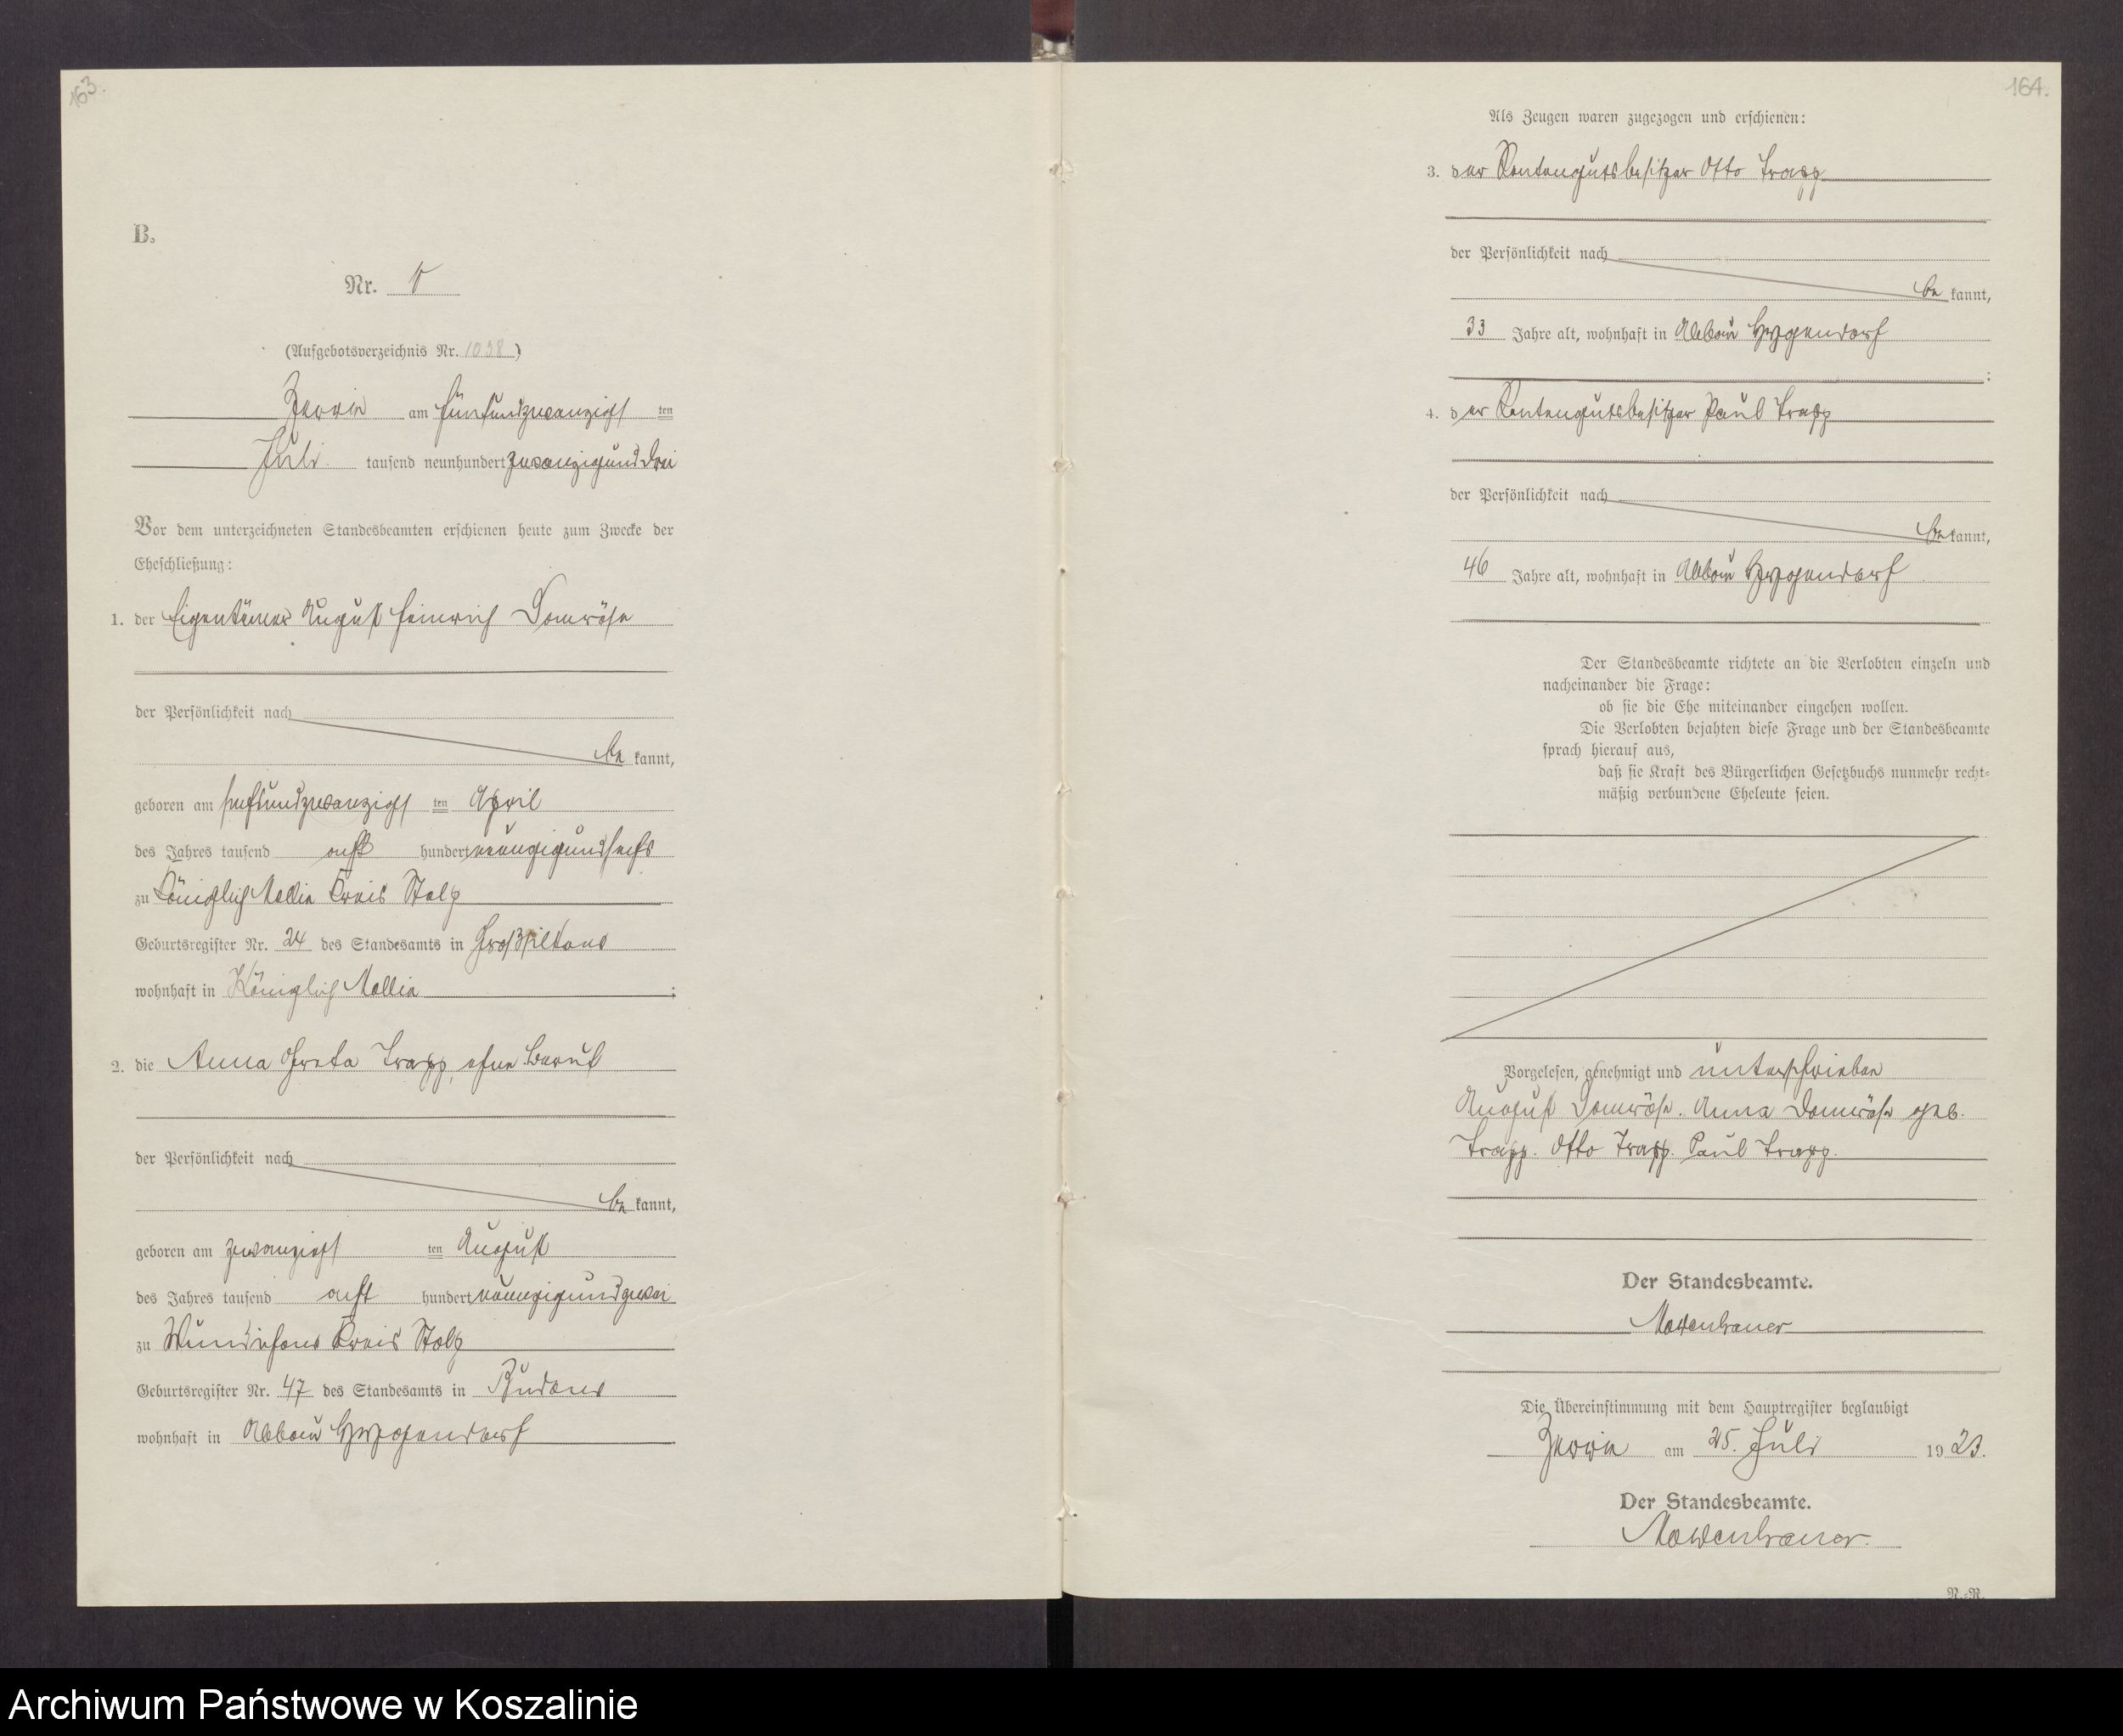 163.
B.
Nr. 5
(Aufgebotsverzeichnis Nr. 1038)
Zerrin am fünfundzwanzigsten
Juli tausend neunhundert zwanzigunddrei
Vor dem unterzeichneten Standesbeamten erschienen heute zum Zwecke der
Eheschließung:
1. der Eigentümer August Heinrich Domröse
der Persönlichkeit nach
be kannt,
geboren am sechsundzwanzigsten April
des Jahres tausend acht hundert neunzigundsechs
zu Königlich Mellin Kreis Stolp
Geburtsregister Nr. 24 des Standesamts in Großsilkow
wohnhaft in Königlich Mellin;
2. die Anna Greta Trapp, ohne Beruf
der Persönlichkeit nach
be kannt,
geboren am zwanzigsten August
des Jahres tausend acht hundert neunzigundzwei
zu Wundichow Kreis Stolp
Geburtsregister Nr. 47 des Standesamts in Budow
wohnhaft in Abbau Hygendorf
164.
Als Zeugen waren zugezogen und erschienen:
3. der Rentengutsbesitzer Otto Trapp
der Persönlichkeit nach
be kannt,
33 Jahre alt, wohnhaft in Abbau Hygendorf
;
4. der Rentengutsbesitzer Paul Trapp
der Persönlichkeit nach
be kannt,
46 Jahre alt, wohnhaft in Abbau Hygendorf
Der Standesbeamte richtete an die Verlobten einzeln und
nacheinander die Frage:
ob sie die Ehe miteinander eingehen wollen.
Die Verlobten bejahten diese Frage und der Standesbeamte
sprach hierauf aus,
daß sie Kraft des Bürgerlichen Gesetzbuchs nunmehr recht-
mäßig verbundene Eheleute seien.
Vorgelesen, genehmigt und unterschrieben
August Domröse. Anna Domröse geb.
Trapp. Otto Trapp. Paul Trapp.
Der Standesbeamte.
Die Übereinstimmung mit dem Hauptregister beglaubigt
Zerrin am 25. Juli 1923.
Der Standesbeamte.
N.-R.
Archiwum Państwowe w Koszalinie